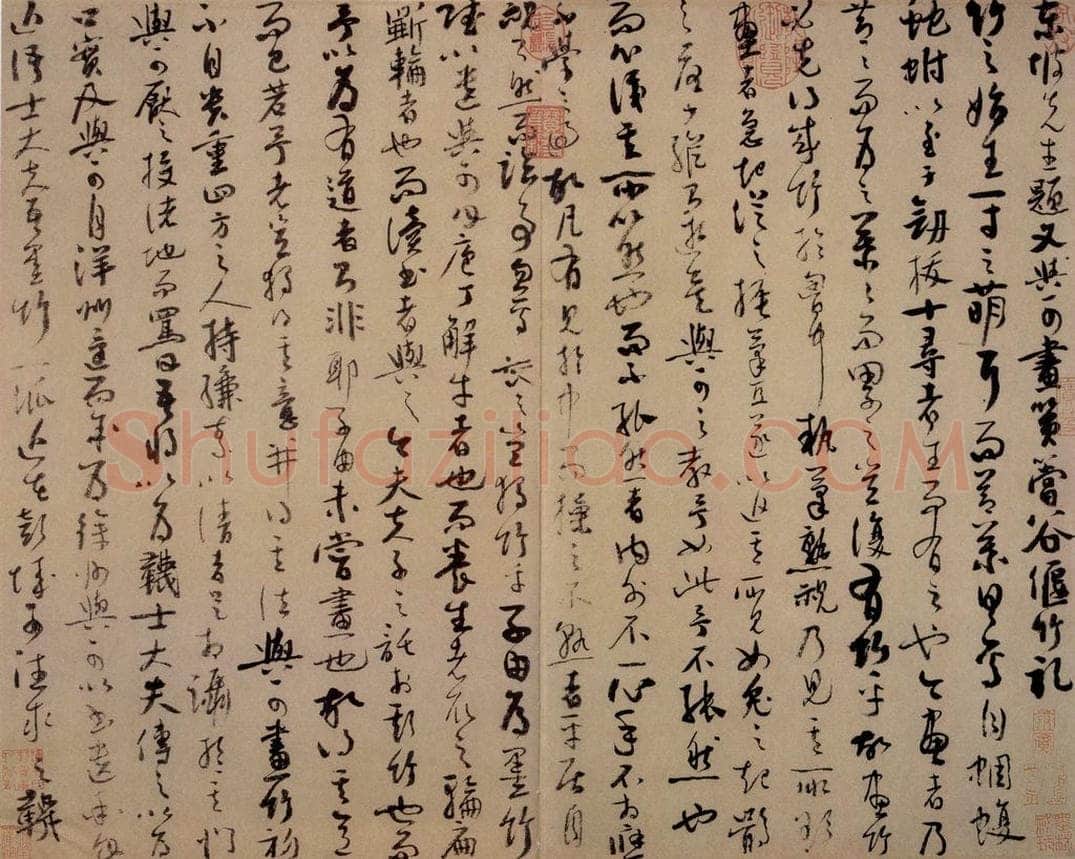 東坡先生題文與可畫篔簹谷偃竹記
竹之始生一寸之萌耳而節葉具焉自蜩蝮
蛇蚹以至于劒拔十尋者生而有之也今畫者乃
節々而為之葉々而累之豈復有竹乎故畫竹
必先得成竹於胷中執筆熟視乃見其所欲
畫者急起從之振筆直遂以追其所見如兔之起鶻
之落少縱則逝矣與可之教予如此予不能然也
而心識其所以然也而不能然者內外不一心手不相應
不學之過也故凡有見於中而操之不熟者平居自
視了然而臨事忽焉喪之豈獨竹乎子由為墨竹
賦以遺與可曰庖丁解牛者也而養生者取之輪扁
斲輪者也而讀書者與之今夫夫子之託於斯竹也而
予以為有道者則非耶子由未嘗畫也故得其意
而已若予者豈獨得其意并得其法與可畫竹初
不自貴重四方之人持縑素以請者足相躡於其門
與可厭之投諸地而罵曰吾將以為韈士大夫傳之以為
口實及與可自洋州還而余為徐州與可以書遺余曰
近語士大夫吾墨竹一派近在彭城可往求之韈
Shufaziliao.COM